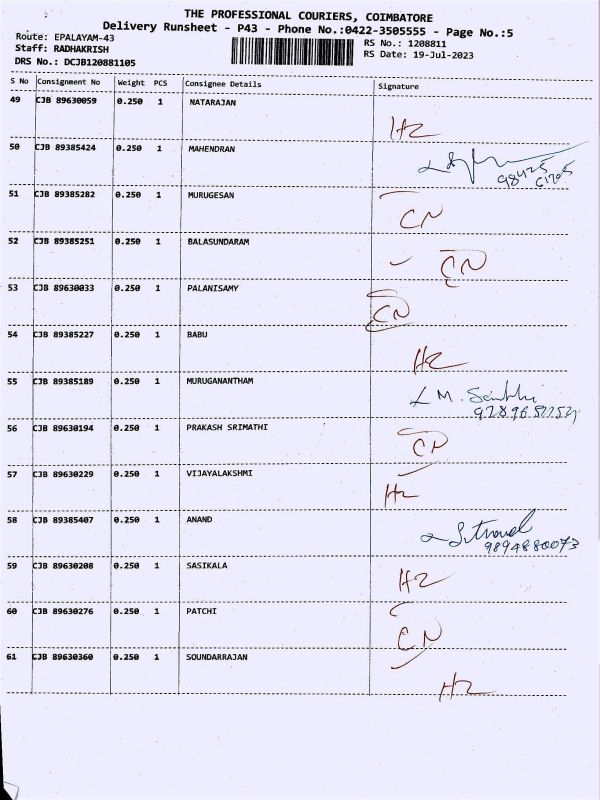 THE PROFESSIONAL COURIERS, COIMBATORE
Delivery Runsheet - P43 - Phone No.:0422-3505555 - Page No.:5
Route: EPALAYAM-43
RS No.: 1208811
Staff: RADHAKRISH
RS Date: 19-Jul-2023
DRS No.: DCJB120881105
S No Consignment No Weight PCS Consignee Details Signature
49 CJB 89630059 0.250 1 NATARAJAN
HZ
50 CJB 89385424 0.250 1 MAHENDRAN
98425
51 CJB 89385282 0.250 1 MURUGESAN
CN
52 CJB 89385251 0.250 1 BALASUNDARAM
CN
53 CJB 89630033 0.250 1 PALANISAMY
CN
54 CJB 89385227 0.250 1 BABU
HZ
55 CJB 89385189 0.250 1 MURUGANANTHAM
M.
56 CJB 89630194 0.250 1 PRAKASH SRIMATHI
CN
57 CJB 89630229 0.250 1 VIJAYALAKSHMI
HZ
58 CJB 89385407 0.250 1 ANAND
9894880073
59 CJB 89630208 0.250 1 SASIKALA
HZ
60 CJB 89630276 0.250 1 PATCHI
CN
61 CJB 89630360 0.250 1 SOUNDARRAJAN
HZ